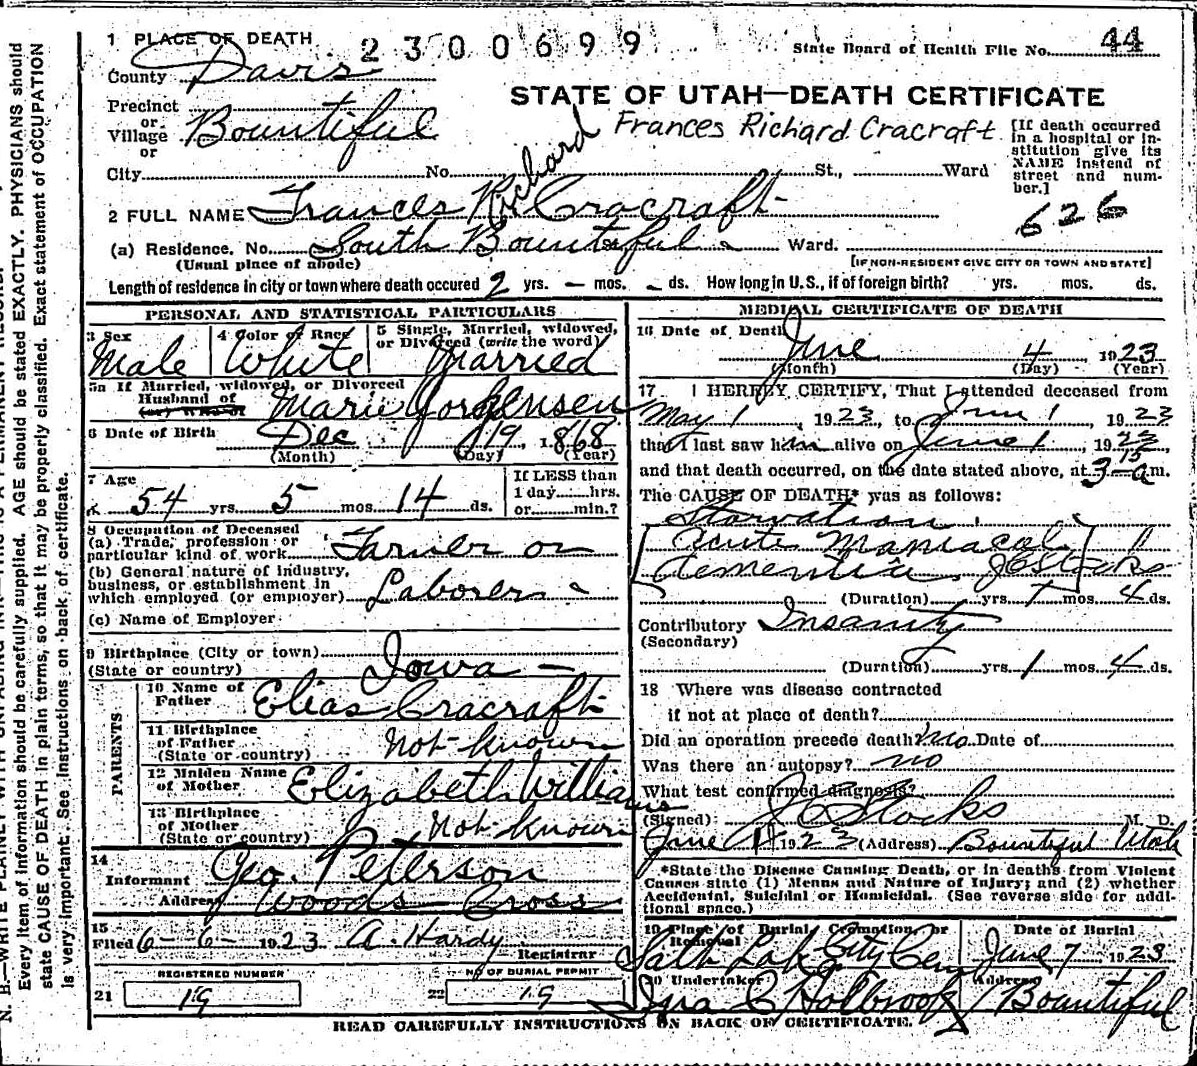 1 PLACE OF DEATH 2300699 State Board of Health File No. 44
County Davis
STATE OF UTAH—DEATH CERTIFICATE
Precinct
or
Village Bountiful
or
Frances Richard Cracraft
[If death occurred in a hospital or institution give its NAME instead of street and number.]
City No. St., Ward
626
2 FULL NAME Frances R Cracraft
Richard
(a) Residence. No. South Bountiful St. Ward.
(Usual place of abode) [IF NON-RESIDENT GIVE CITY OR TOWN AND STATE]
Length of residence in city or town where death occured 2 yrs. — mos. - ds. How long in U.S., if of foreign birth? yrs. mos. ds.
PERSONAL AND STATISTICAL PARTICULARS
3 Sex 4 Color or Race 5 Single, Married, widowed,
or Divorced (write the word)
Male White Married
5a If Married, widowed, or Divorced
Husband of
(or) Wife of Marie Jorgensen
6 Date of Birth Dec 19 1868
(Month) (Day) (Year)
7 Age If LESS than
54 yrs. 5 mos. 14 ds. 1 day......hrs.
or......min.?
8 Occupation of Deceased
(a) Trade, profession or
particular kind of work Farmer or
(b) General nature of industry,
business, or establishment in
which employed (or employer) Laborer
(c) Name of Employer
9 Birthplace (City or town)
(State or country) Iowa —
PARENTS
10 Name of
Father Elias Cracraft
11 Birthplace
of Father
(State or country) Not-known
12 Maiden Name
of Mother Elizabeth Williams
13 Birthplace
of Mother
(State or country) Not-known
14
Informant Geo. Peterson
Address Woods Cross
15
Filed 6-6-1923 A. Hardy
Registrar
REGISTERED NUMBER NO OF BURIAL PERMIT
21 19 22 19
MEDICAL CERTIFICATE OF DEATH
16 Date of Death June 4 1923
(Month) (Day) (Year)
17 I HEREBY CERTIFY, That I attended deceased from
May 1, 1923, to June 1, 1923
that I last saw him alive on June 1, 1923
and that death occurred, on the date stated above, at 3-15 a m.
The CAUSE OF DEATH* was as follows:
Starvation
Acute Maniacal
dementia JC Stocks
(Duration) yrs. 1 mos. 4 ds.
Contributory Insanity
(Secondary)
(Duration) yrs. 1 mos. 4 ds.
18 Where was disease contracted
if not at place of death?
Did an operation precede death? No Date of
Was there an autopsy? no
What test confirmed diagnosis?
(Signed) JC Stocks M. D.
June 1923 (Address) Bountiful Utah
*State the Disease Causing Death, or in deaths from Violent
Causes state (1) Means and Nature of Injury; and (2) whether
Accidental, Suicidal or Homicidal. (See reverse side for additional space.)
19 Place of Burial, Cremation or
Removal Date of Burial
Salt Lake City Cem June 7 1923
20 Undertaker Address
Ira C Holbrook Bountiful
READ CAREFULLY INSTRUCTIONS ON BACK OF CERTIFICATE.
Every item of information should be carefully supplied. AGE should be stated EXACTLY. PHYSICIANS should
state CAUSE OF DEATH in plain terms, so that it may be properly classified. Exact statement of OCCUPATION
is very important. See Instructions on back of certificate.